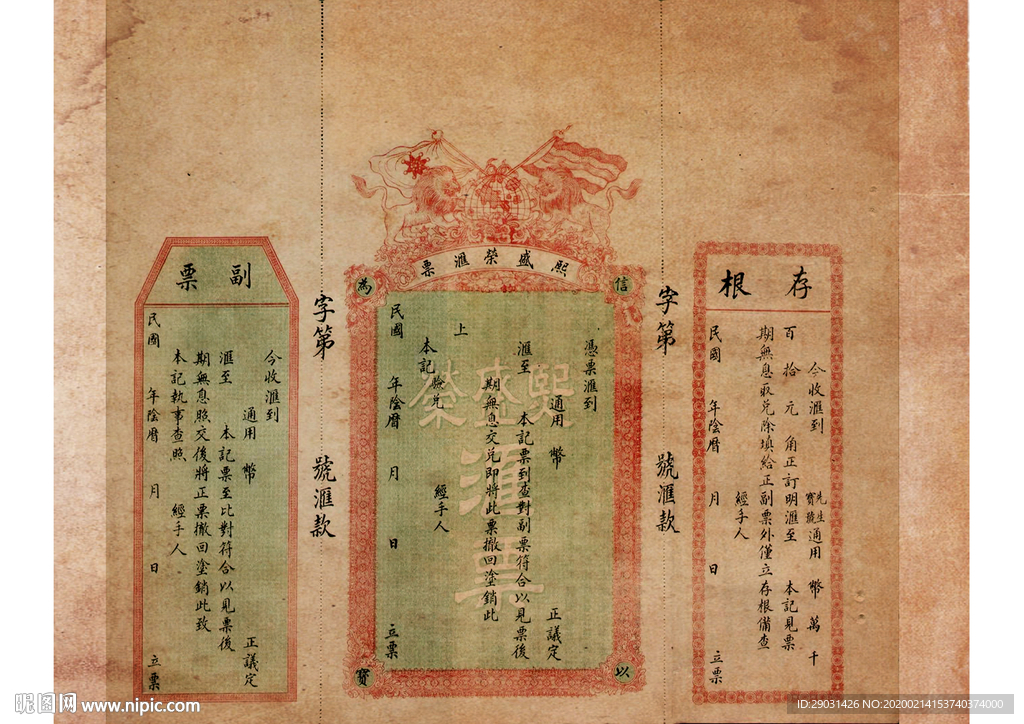 存根
今收滙到
先生
寶號
通用 幣 萬 千
百 拾 元 角正訂明滙至 本記見票
期無息取兌除填給正副票外僅立存根備查
經手人
民國 年陰曆 月 日 立票
字第 號滙款
熙盛榮滙票
信
以
為
寶
熙盛榮
滙票
憑票滙到
通用 幣 正議定
滙至 本記票到查對副票符合以見票後
期無息交兌即將此票撤回塗銷此
上
本記 驗兌 經手人
民國 年陰曆 月 日 立票
字第 號滙款
副票
今收滙到
通用 幣 正議定
滙至 本記票至比對符合以見票後
期無息照交後將正票撤回塗銷此致
本記執事查照 經手人
民國 年陰曆 月 日 立票
昵图网 www.nipic.com
ID:29031426 NO:20200214153740374000